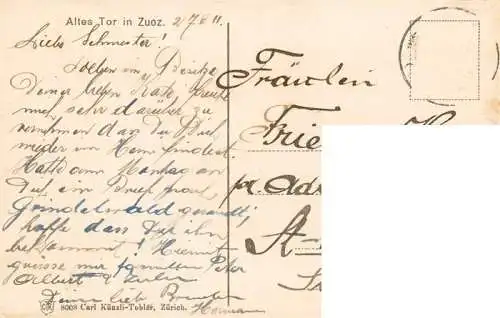 Altes Tor in Zuoz. 27.6.11.
Liebe Schwester!
Soeben im Besitze
Deiner lieben Karte freute
mich sehr darüber zu
vernehmen das du Dich
wieder im Heim findest.
Hatte am Montag an
Dich ein Brief nach
Grindelwald gesandt,
hoffe dass Du ihn
bekommst! Hiermit
grüsse mir Peter
Albert &
Deine lieb Bruder
Hermann
8008 Carl Künzli-Tobler, Zürich.
Fräulein
Frie
pr. Adr
A